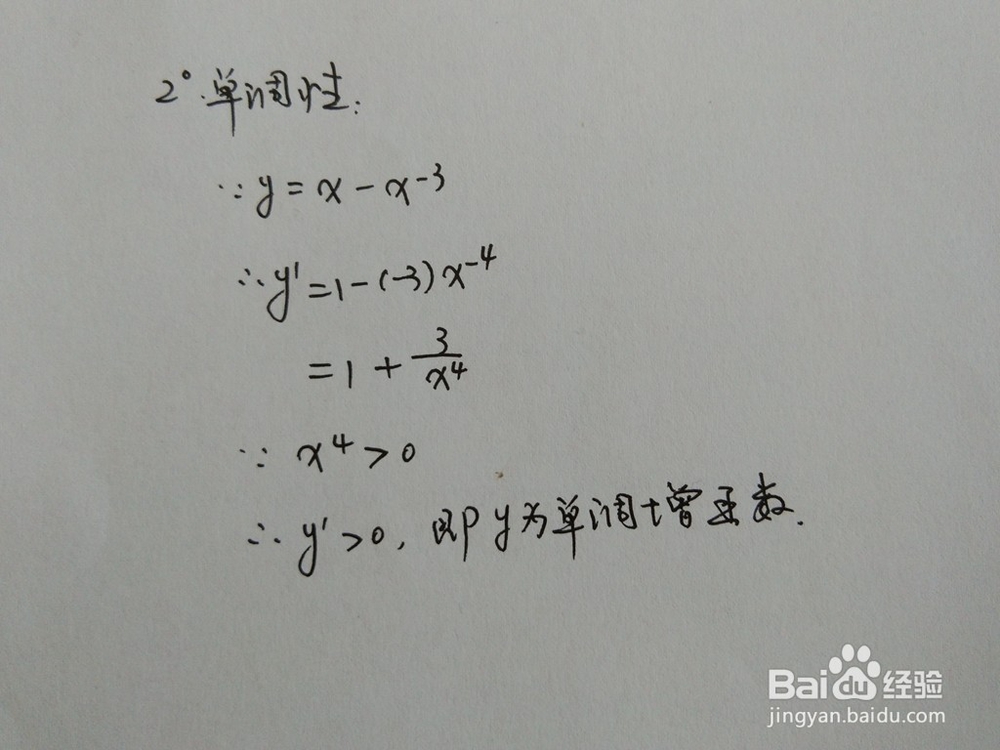 2°.单调性:
∵y=x-x⁻³
∴y'=1-(-3)x⁻⁴
=1+3/x⁴
∵ x⁴>0
∴y'>0,即y为单调增函数.
Baidu经验
jingyan.baidu.com